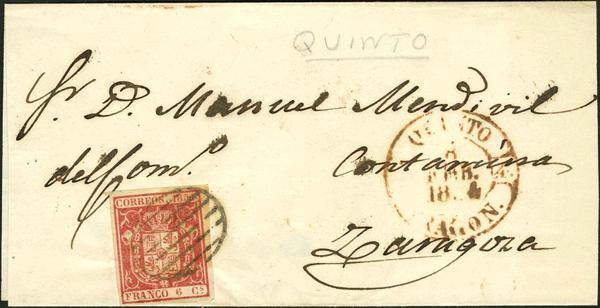 QUINTO
Sr. D. Manuel Mendivil
del Com.º Contamina
Zaragoza
QUINTO
8
18 4
AGON.
CORREOS. 185
FRANCO 6 Cs